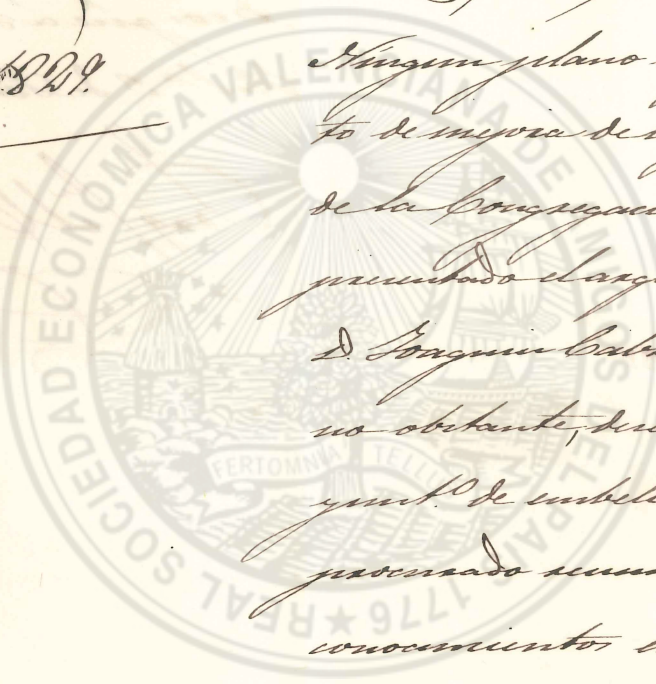 1829.
Ningun plano
to de mejora de
de la Congregac
presentado el arq
D. Joaquin Cab
no obstante, des
yunt.º de embele
procurado reun
conocimientos e
REAL SOCIEDAD ECONOMICA VALENCIANA DE AMIGOS DEL PAIS
1776
FERT OMNIA TELLUS